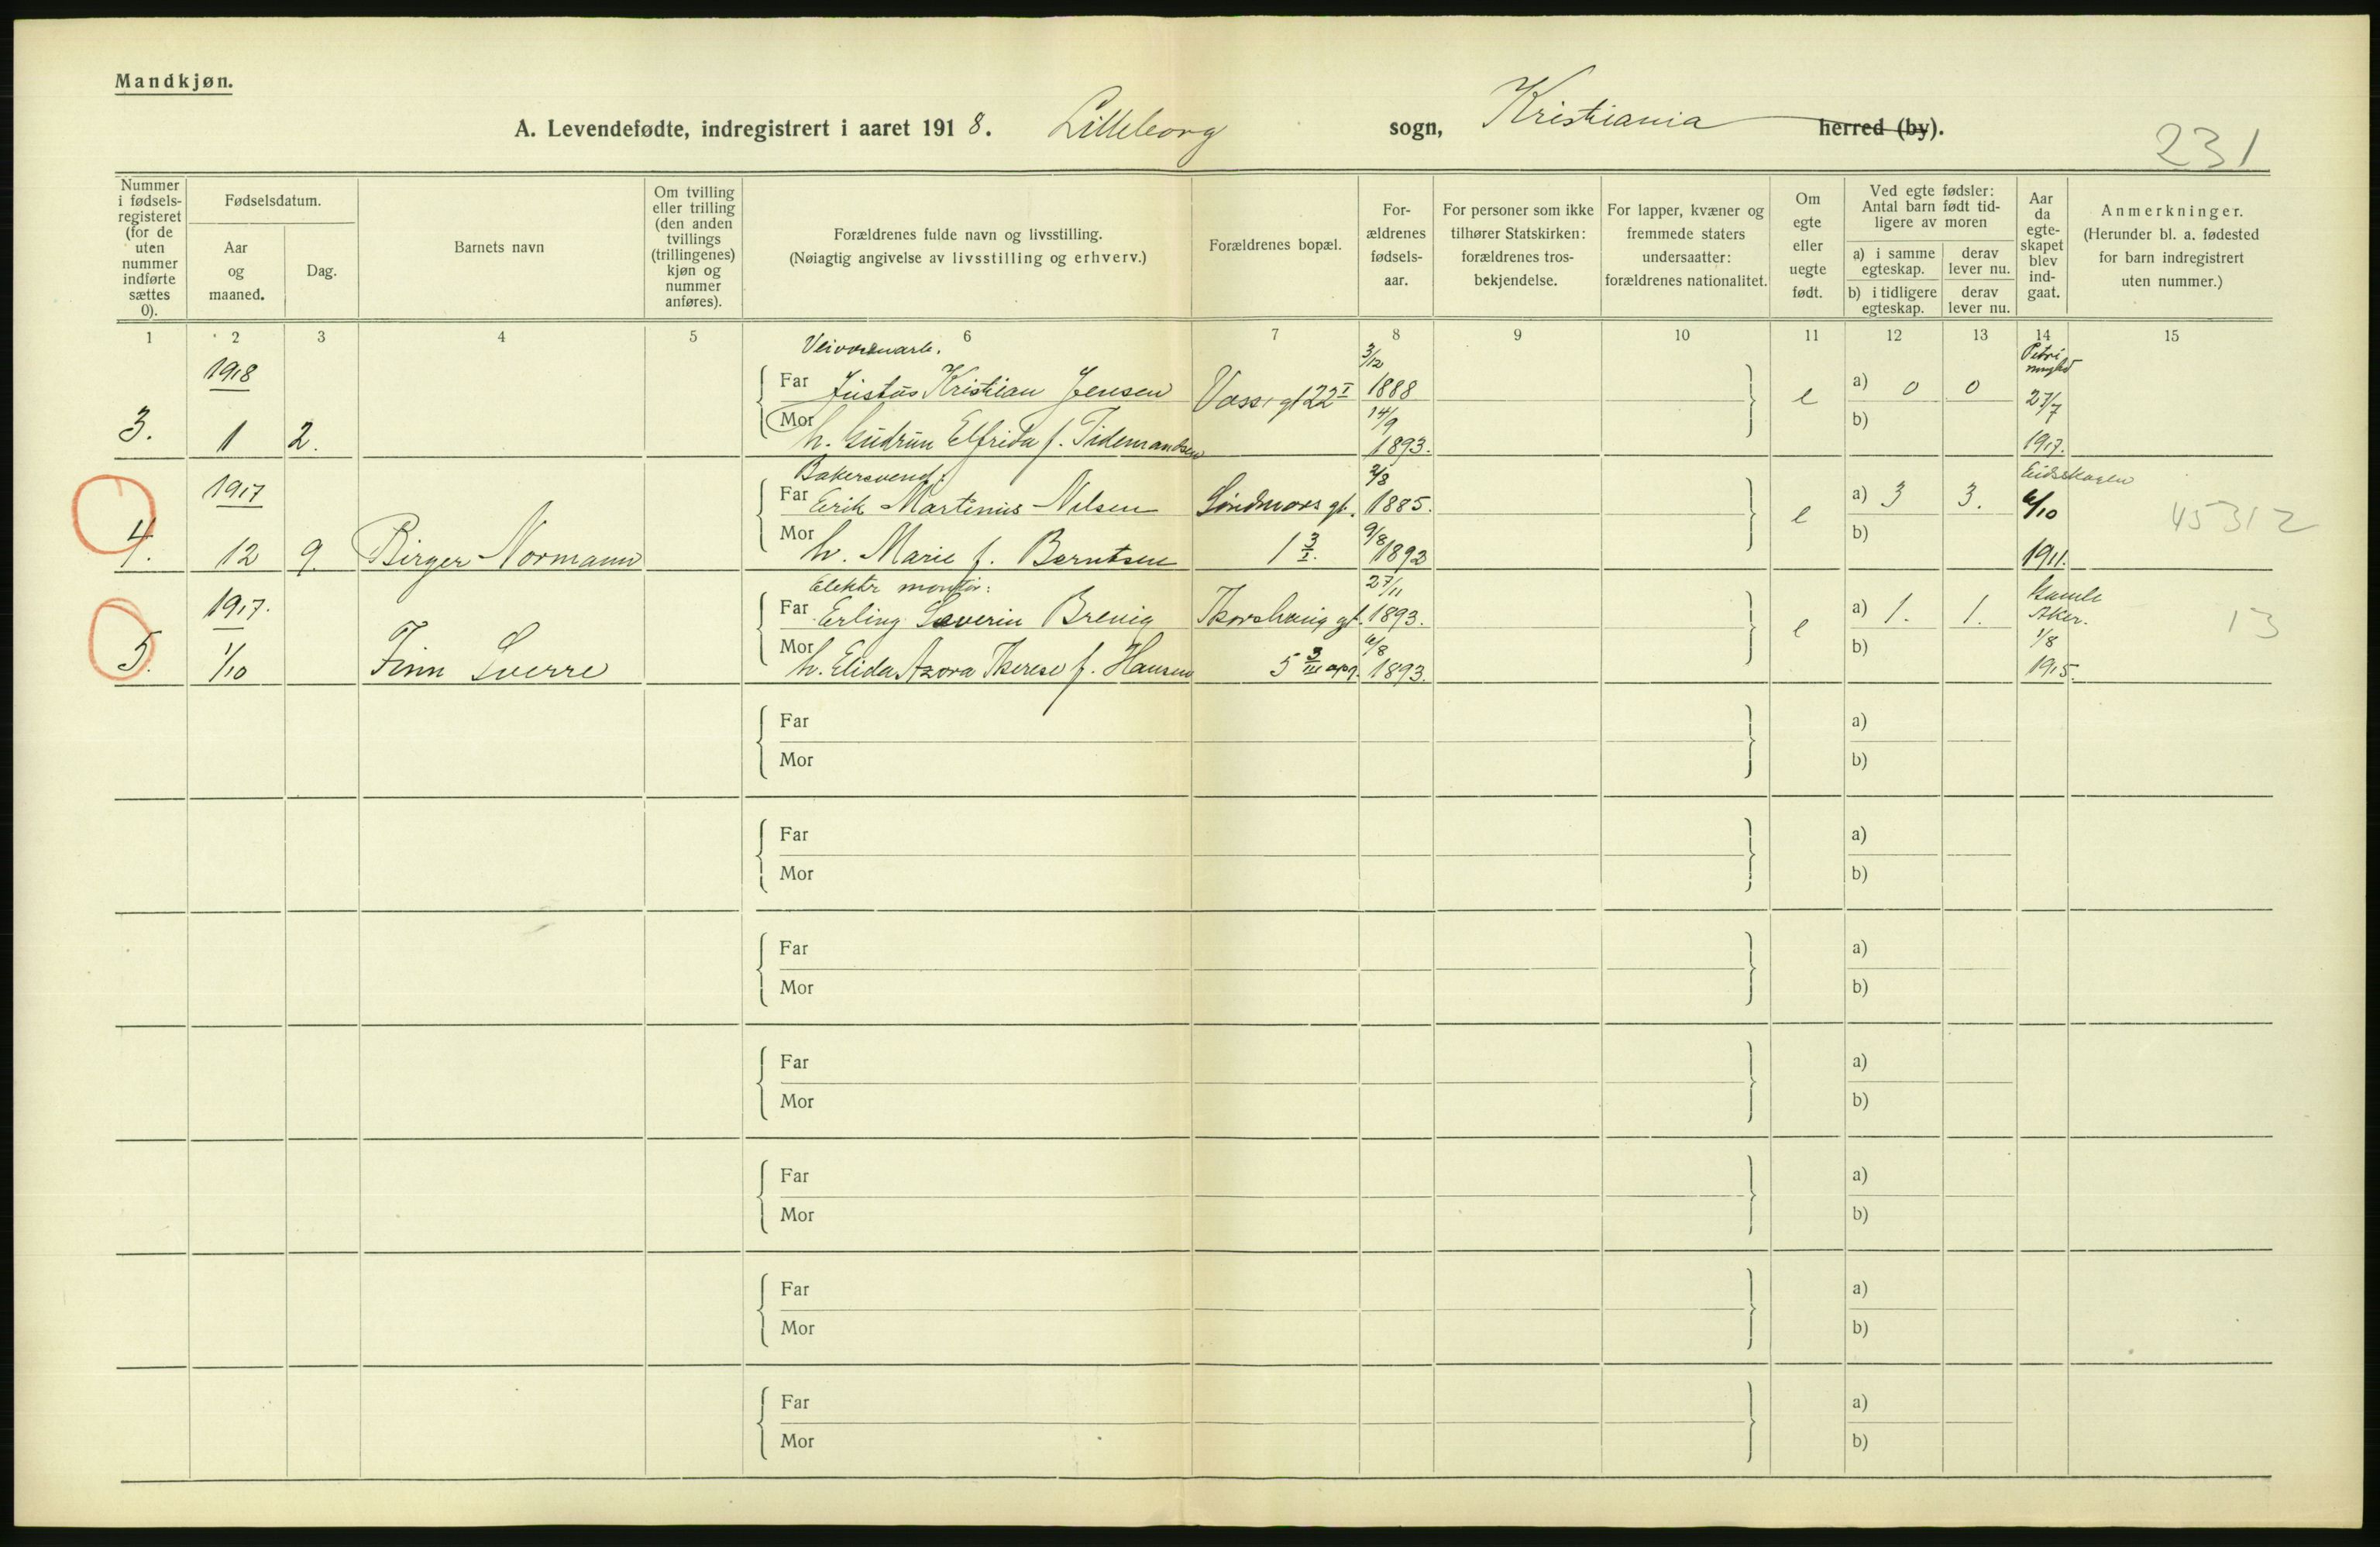 Mandkjøn.
A. Levendefødte, indregistrert i aaret 1918. Lilleborg sogn, Kristiania herred (by).
231
Nummer i fødsels- registeret (for de uten nummer indførte sættes 0).
Fødselsdatum.
Aar og maaned.
Dag.
Barnets navn
Om tvilling eller trilling (den anden tvillings (trillingenes) kjøn og nummer anføres).
Forældrenes fulde navn og livsstilling.
(Nøiagtig angivelse av livsstilling og erhverv.)
Forældrenes bopæl.
For- ældrenes fødsels- aar.
For personer som ikke tilhører Statskirken: forældrenes tros- bekjendelse.
For lapper, kvæner og fremmede staters undersaatter: forældrenes nationalitet.
Om egte eller uegte født.
Ved egte fødsler: Antal barn født tid- ligere av moren
a) i samme egteskap.
derav lever nu.
b) i tidligere egteskap.
derav lever nu.
Aar da egte- skapet blev ind- gaat.
Anmerkninger.
(Herunder bl. a. fødested for barn indregistrert uten nummer.)
1 2 3 4 5 6 7 8 9 10 11 12 13 14 15
1918 3/12 Petri
Far Justus Kristian Jensen 1888 e a) 0 0 27/7
Mor 14/9 b)
3. 1 2. h. Gudrun Elfrida f. Tidemandsen 1893. 1917.
1917 Bakersvend: 2/8 Eidskogen
Far Erik Martinius Nilsen Søndmørs gt. 1885. e a) 3 3. 6/10 45312
Mor 9/8 b)
4. 12 9. Birger Normann h. Marie f. Berntsen 1 3/I. 1892 1911.
1917. Elektr montør: 27/11 Gamle
Far Erling Severin Brevig Thorshaug gt. 1893. e a) 1. 1. Aker. 13
Mor 6/8 b) 1/8
5. 1/10 Finn Sverre h. Elida Azora Therese f. Hansen 5 3/III opg. 1893. 1915.
Far a)
Mor b)
Far a)
Mor b)
Far a)
Mor b)
Far a)
Mor b)
Far a)
Mor b)
Far a)
Mor b)
Far a)
Mor b)